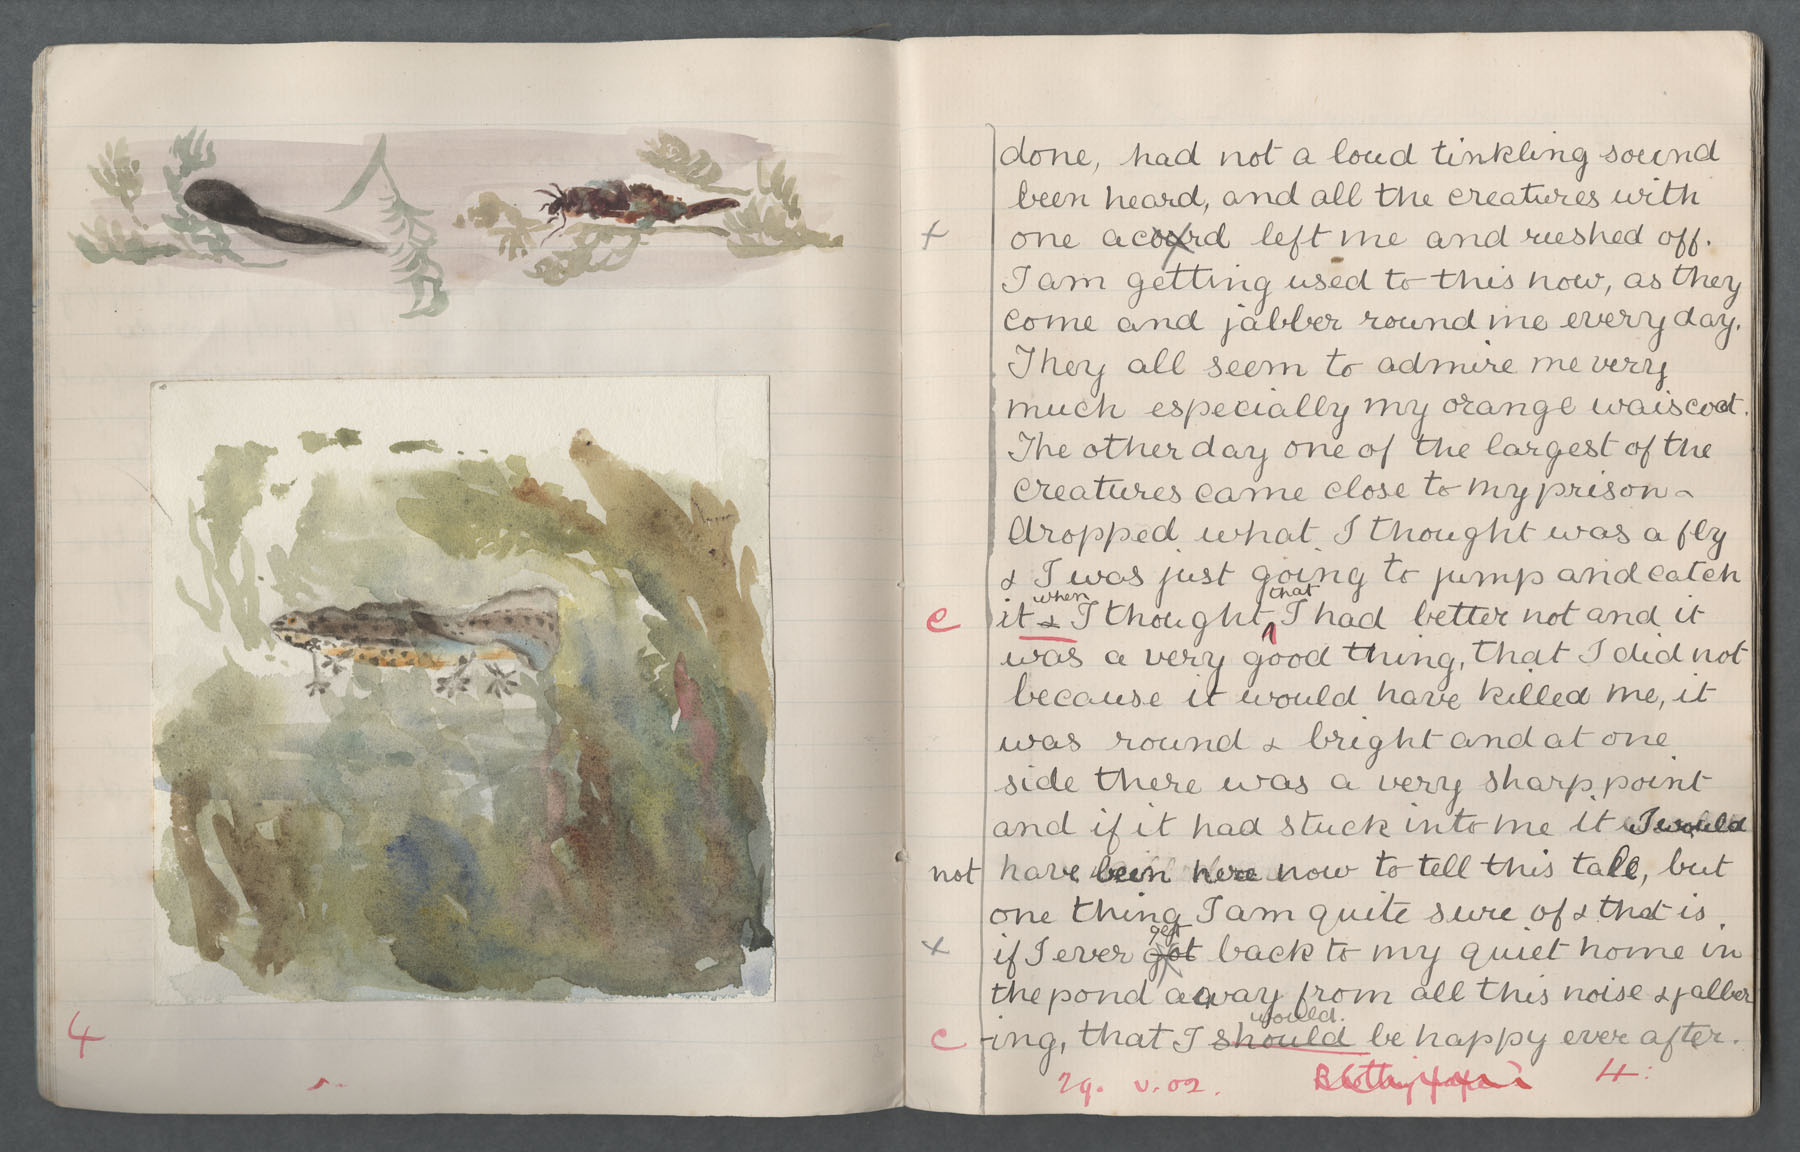 4
done, had not a loud tinkling sound
been heard, and all the creatures with
+ one acoxrd left me and rushed off.
I am getting used to this now, as they
come and jabber round me every day.
They all seem to admire me very
much especially my orange waiscoat.
The other day one of the largest of the
creatures came close to my prison &
dropped what I thought was a fly
& I was just going to jump and catch
when that
c it & I thought, I had better not and it
was a very good thing, that I did not
because it would have killed me, it
was round & bright and at one
side there was a very sharp point
and if it had stuck into me it I would
not have been here now to tell this tale, but
one thing I am quite sure of & that is
get
+ if I ever got back to my quiet home in
the pond away from all this noise & jabber
would.
c -ing, that I should be happy ever after.
29. V. 02. 4: